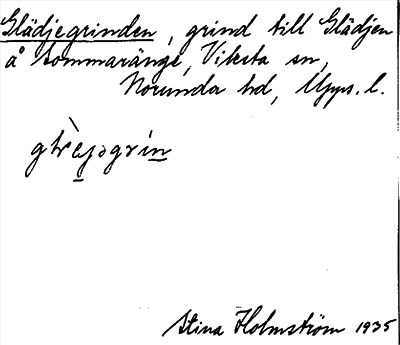 Glädjegrinden, grind till Glädjen
å Sommaränge, Viksta sn,
Norunda hd, Upps. l.
Stina Holmström 1935